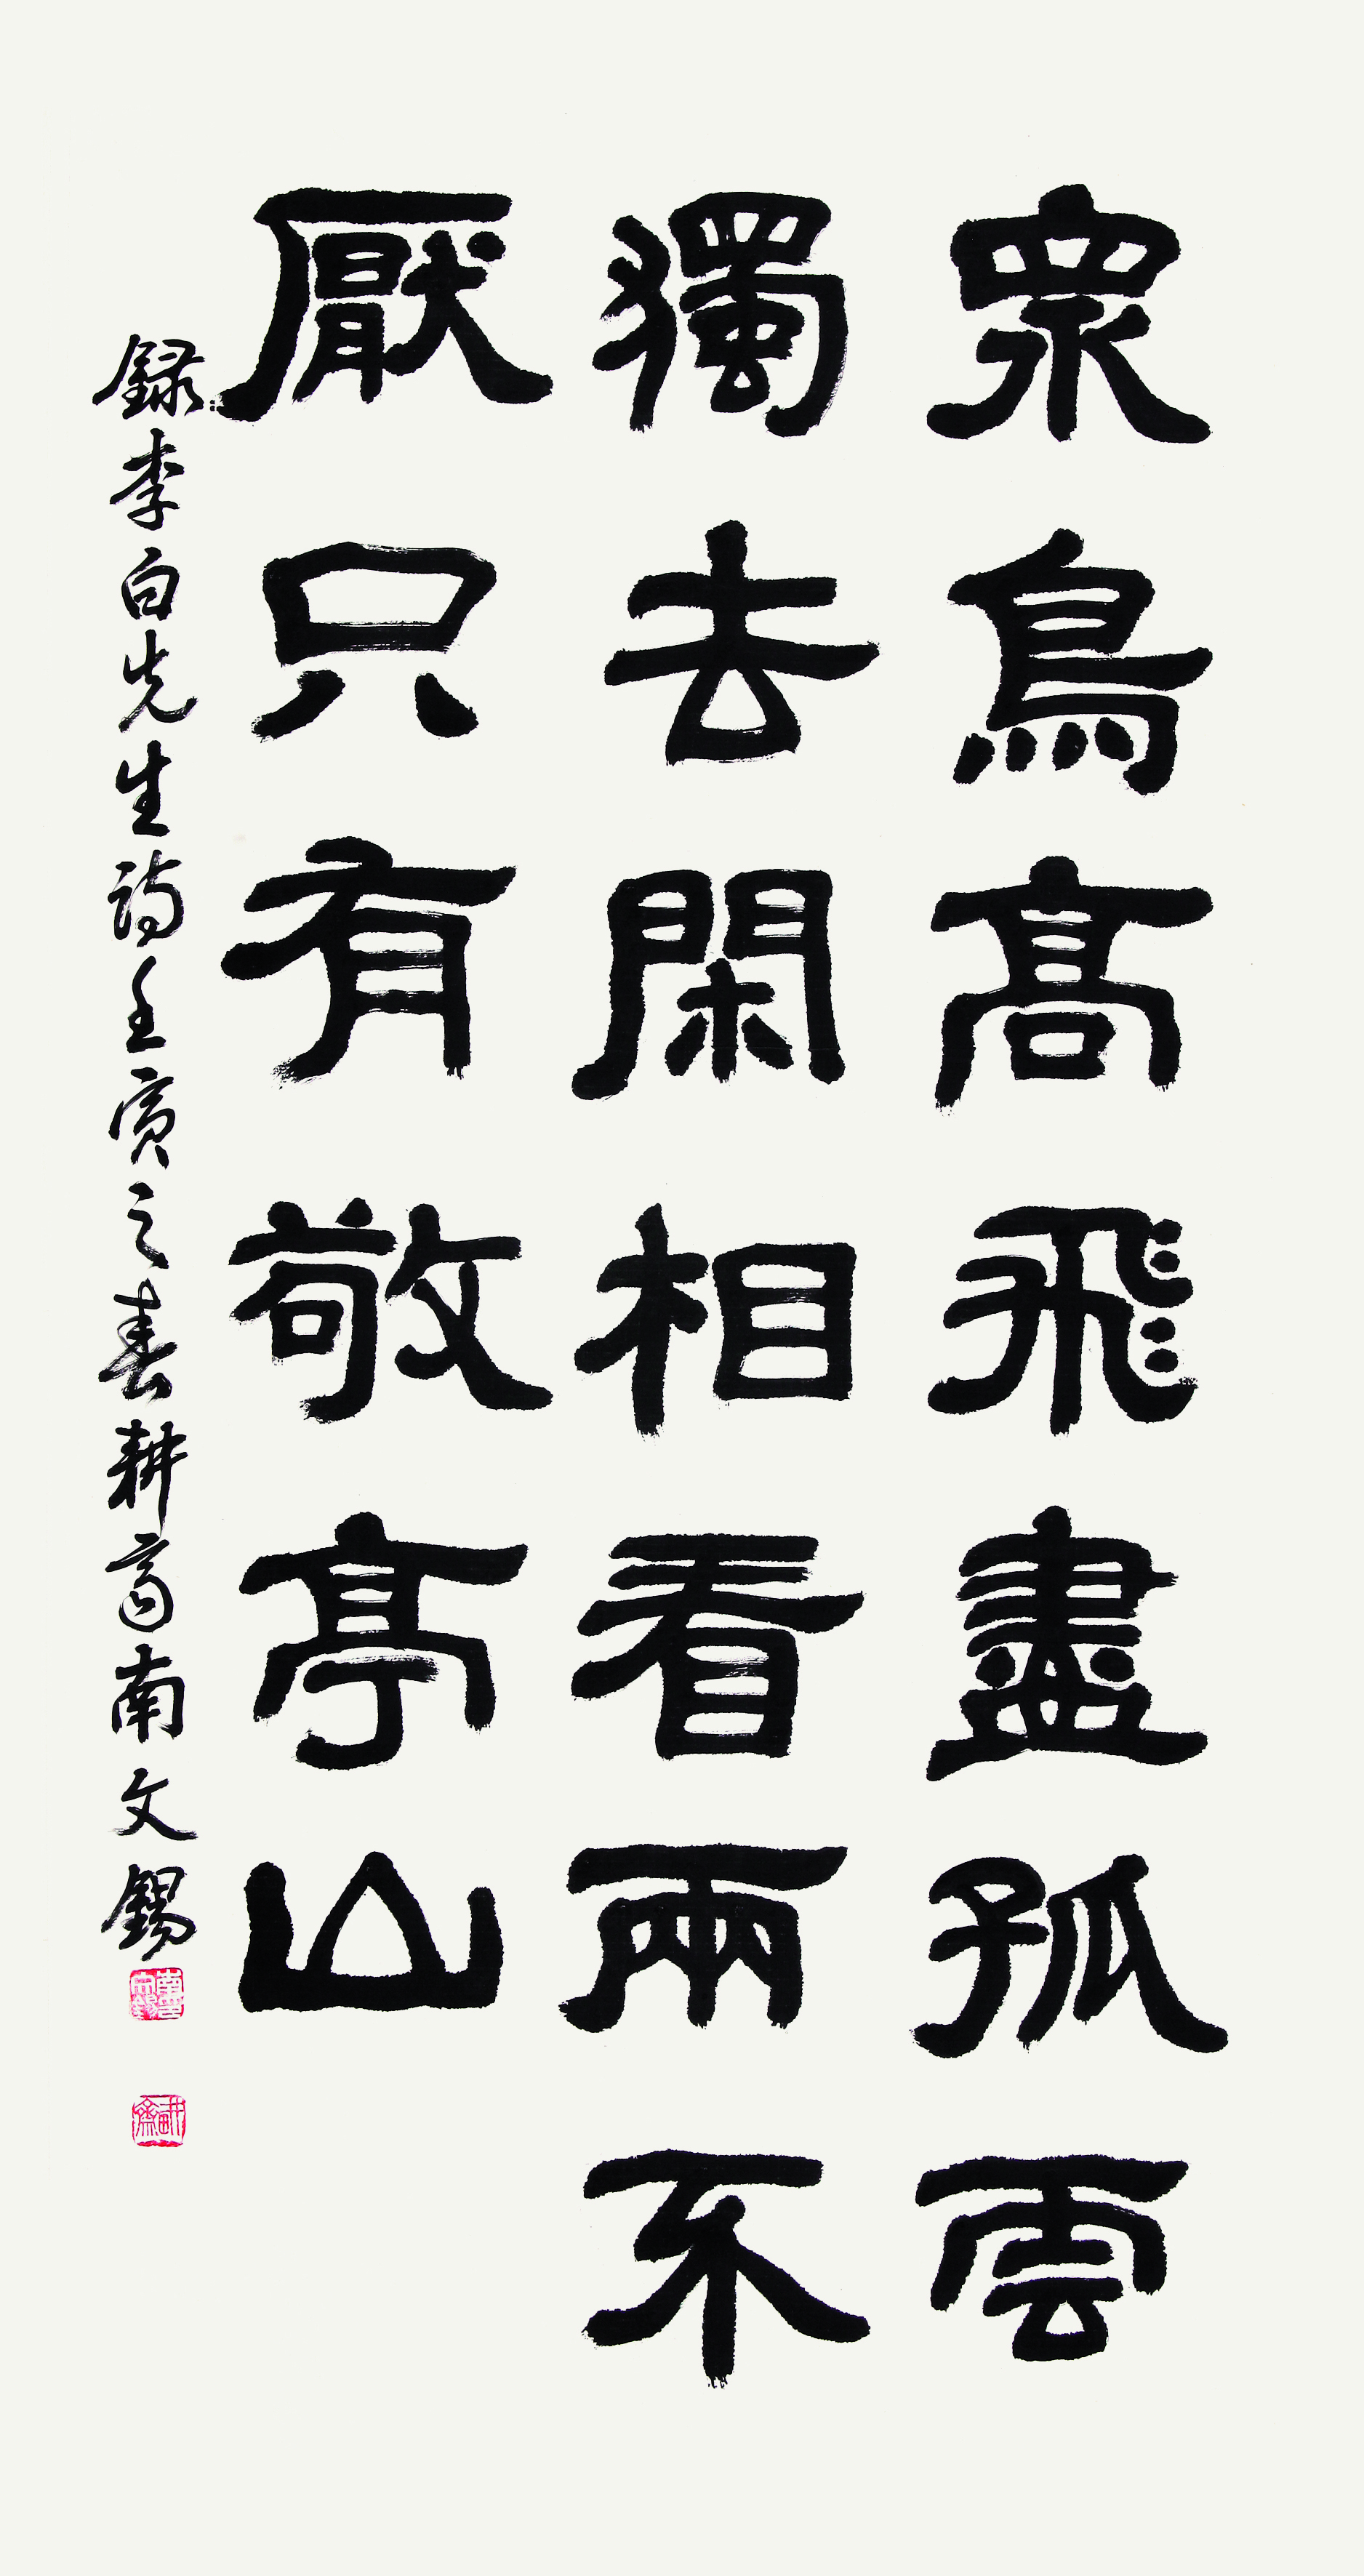 衆鳥高飛盡孤雲
獨去閑相看兩不
厭只有敬亭山
録李白先生詩壬寅之春耕齋南文錫